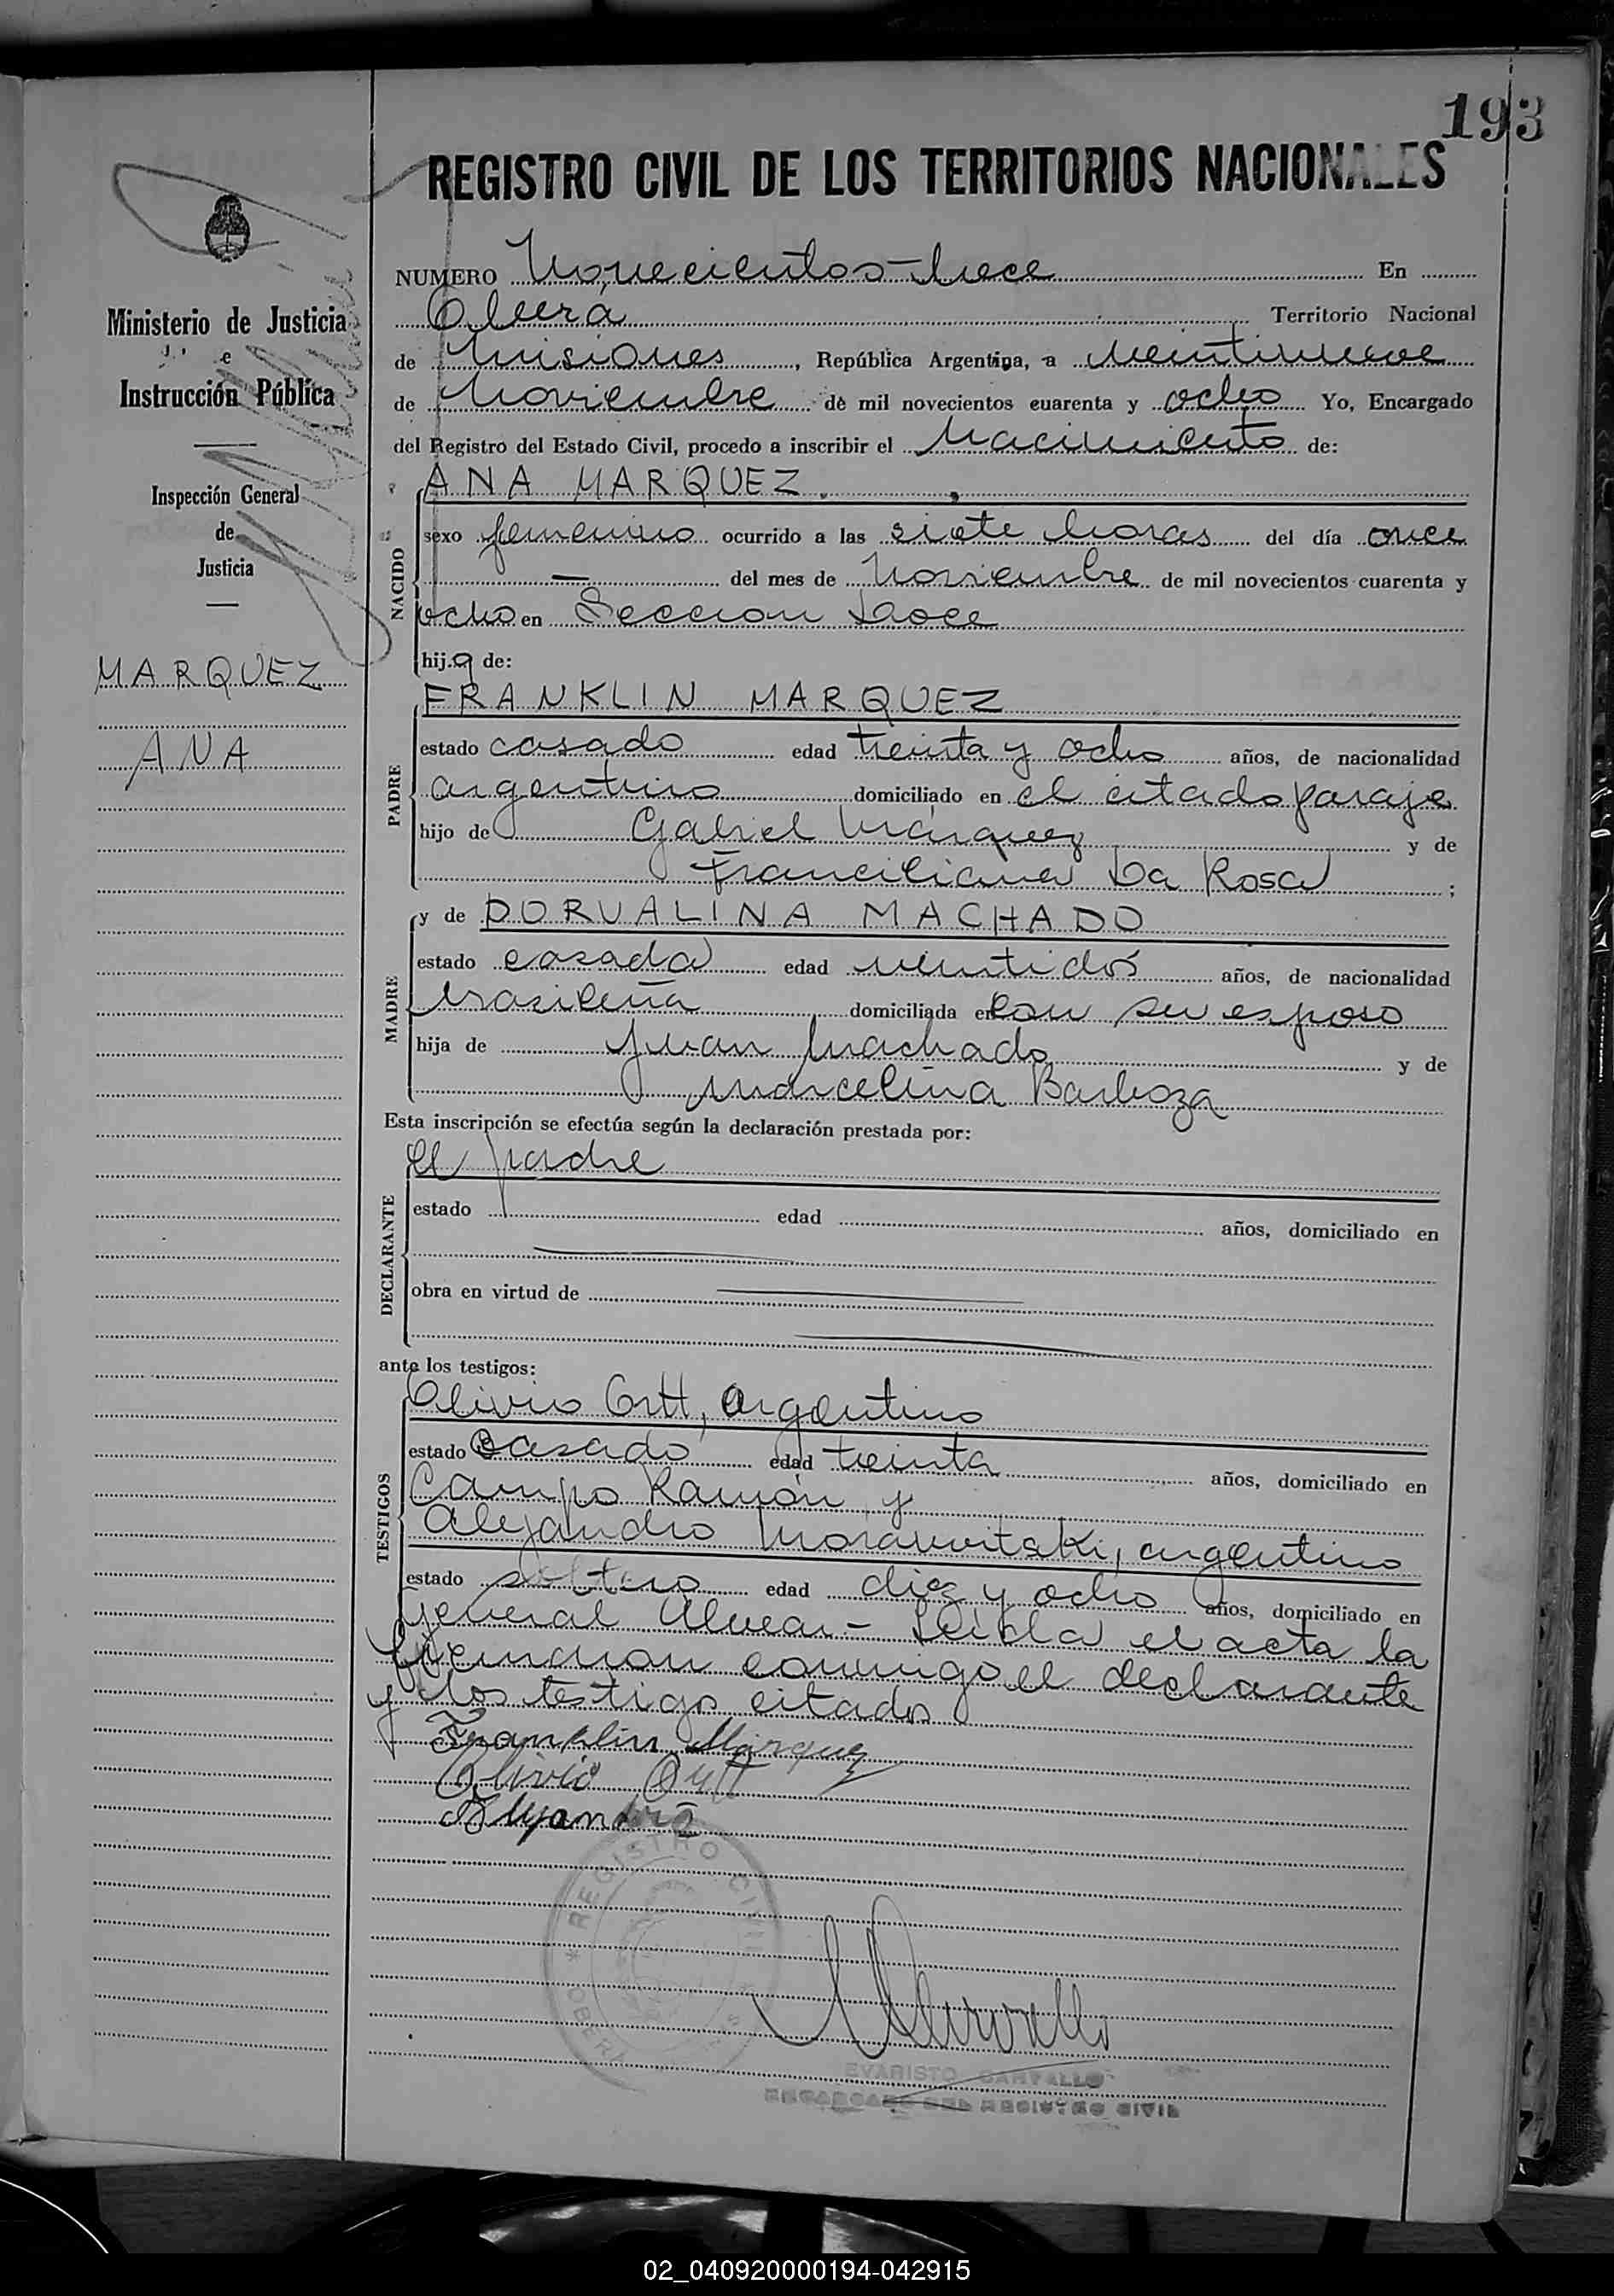 193
REGISTRO CIVIL DE LOS TERRITORIOS NACIONALES
NUMERO Novecientos trece En
Oberá Territorio Nacional
de Misiones, República Argentina, a veintinueve
de Noviembre de mil novecientos cuarenta y ocho Yo, Encargado
del Registro del Estado Civil, procedo a inscribir el Nacimiento de:
NACIDO
ANA MARQUEZ.
sexo femenino ocurrido a las siete horas del día once
— del mes de Noviembre de mil novecientos cuarenta y
ocho en Seccion Doce
hija de:
PADRE
FRANKLIN MARQUEZ
estado casado edad treinta y ocho años, de nacionalidad
argentino domiciliado en el citado paraje
hijo de Gabriel Márquez y de
Franciliana Da Rosa ;
MADRE
y de DORVALINA MACHADO
estado casada edad veintidós años, de nacionalidad
brasileña domiciliada en con su esposo
hija de Juan Machado y de
Marcelina Barboza
Esta inscripción se efectúa según la declaración prestada por:
DECLARANTE
el padre
estado edad años, domiciliado en
obra en virtud de
ante los testigos:
TESTIGOS
Olivio Ortt, argentino
estado casado edad treinta años, domiciliado en
Campo Ramón y
Alejandro Morawitski, argentino
estado soltero edad diez y ocho años, domiciliado en
General Alvear - Leída el acta la
firman conmigo el declarante
y los testigo citados
Franklin Marquez
Olivio Ortt
Alejandro
REGISTRO CIVIL
* OBERA
EVARISTO CARVALLO
ENCARGADO DEL REGISTRO CIVIL
Ministerio de Justicia
e
Instrucción Pública
Inspección General
de
Justicia
MARQUEZ
ANA
02_040920000194-042915